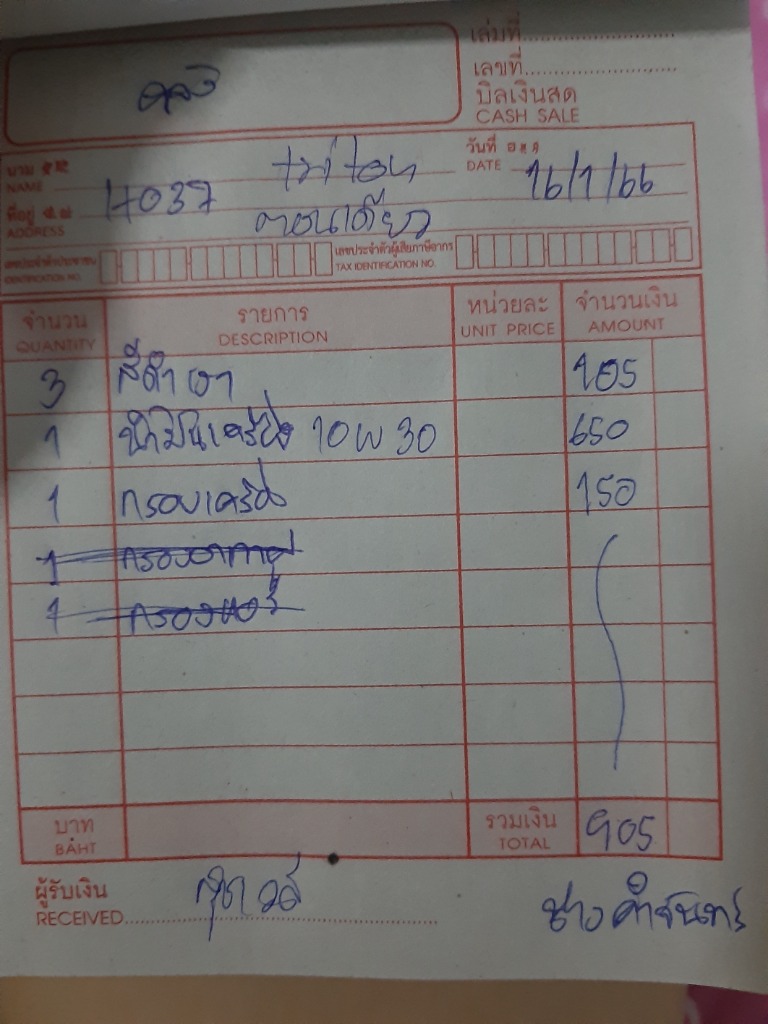 เล่มที่
เลขที่
บิลเงินสด
CASH SALE
นาม
NAME
triton
วันที่
DATE 16/1/66
ที่อยู่
ADDRESS
4037
ตอนเดียว
เลขประจำตัวประชาชน
IDENTIFICATION NO.
เลขประจำตัวผู้เสียภาษีอากร
TAX IDENTIFICATION NO.
จำนวน รายการ หน่วยละ จำนวนเงิน
QUANTITY DESCRIPTION UNIT PRICE AMOUNT
3 สีดำเงา 105
1 น้ำมันเครื่อง 10W30 650
1 กรองเครื่อง 150
1 กรองอากาศ
1 กรองแอร์
บาท รวมเงิน
BAHT TOTAL 905
ผู้รับเงิน
RECEIVED